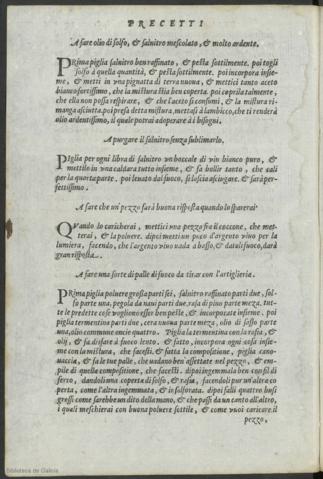 PRECETTI
A fare olio di solfo, & salnitro mescolato, & molto ardente.
PRima piglia salnitro ben raffinato, e pesta sottilmente. poi togli
solfo a quella quantità, & pesta sottilmente. poi incorpora insie-
me, & metti in vna pignatta di terra nuoua, & mettici tanto aceto
bianco fortissimo, che la mistura stia ben coperta. poi coprila talmente,
che ella non possa respirare, & che l'aceto si consumi, & la mistura ri-
manga asciutta, poi presa detta mistura, mettasi à lambicco, che ti renderà
olio ardentissimo, il quale potrai adoperare à i bisogni.
A purgare il salnitro senza sublimarlo.
PIglia per ogni libra di salnitro vn boccale di vin bianco puro, &
mettilo in vna caldara tutto insieme, & fa bollir tanto, che cali
per la quarta parte, poi leuato dal fuoco, si lascia asciugare. & sarà per-
fettissimo.
A fare che vn pezzo farà buona risposta quando lo sparerai
QVando lo caricherai, mettici vna pezza fra il coccone, che met-
terai, & la poluere. dipoi metti vn poco d'argento viuo per la
lumiera, facendo, che l'argento viuo vada a basso, & datali fuoco, darà
gran risposta.
A fare una sorte di palle di fuoco da tirar con l'artiglieria.
PRima piglia poluere grossa parti sei, salnitro raffinato parti due, sol-
fo parte una, pegola da naui parti due, rasa di pino parte meza, tut-
te le predette cose vogliono esser ben peste, & incorporate insieme. poi
piglia termentina parti due, cera nuoua parte meza, olio di sasso parte
una, olio commune oncie quattro. Piglia la termentina con la rasia, &
olij, & fa disfare à fuoco lento. & fatto, incorpora ogni cosa insie-
me con la mistura, che facesti, & fatta la compositione, piglia cana-
uaccia, & fa le tue palle, che uadano ben'assettate nel pezzo, & em-
pile di quella compositione, che facesti. dipoi ingemmala ben con fil di
ferro, dandoli una coperta di solfo, & rasia, facendoli pur un'altra co
perta, come l'altra ingemmata, & insolforata. dipoi falli quattro busi
grossi come sarebbe un dito della mano, & che passi da un canto all'altro,
i quali meschierai con buona poluere sottile, & come vuoi caricare il
pezzo,
Biblioteca de Galicia